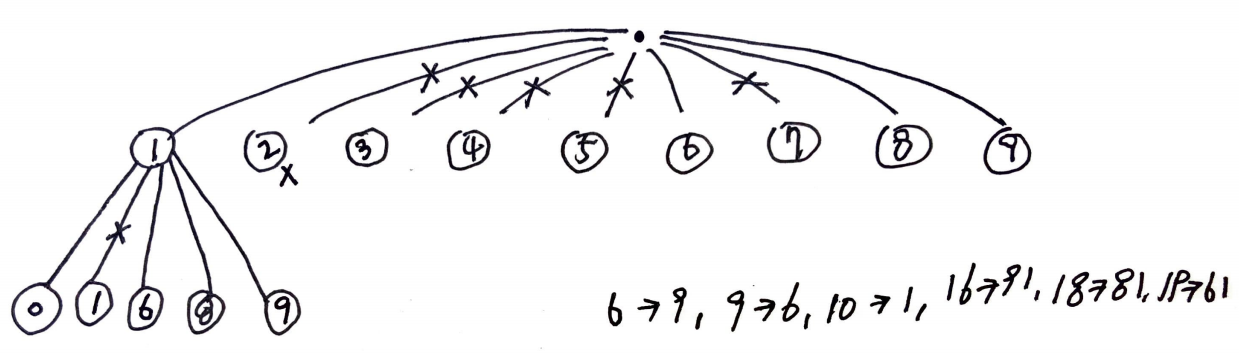 1 2 3 4 5 6 7 8 9
0 1 6 8 9
6→9, 9→6, 10→1, 16→91, 18→81, 19→61